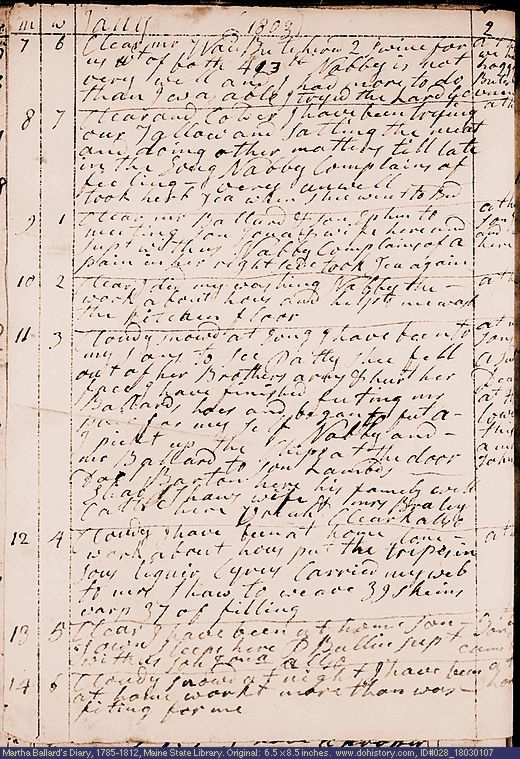 m w Jany 1803 2
7 6 Clear mr Wad Butchrd 2 swine for
us wt of both 413 lb Nabby is not
very well and I had more to do
than I was able I tryd the Lard &c
8 7 Clear and Cold I have been trying
our Tallow and salting the meat
and doing other matters till late
in the Evng Nabby Complains of
feeling very unwell
took herb Tea when shee went to Bed
9 1 Clear mr Ballard & son Ephm to
meeting son Jonas wife here and
supt with us Nabby Complains of a
pain in her right side took Tea again
10 2 Clear I did my washing Nabby the
work about hous and helpt me wash
the kitchen floor
11 3 Cloudy snowd at Evng I have been to
my sons to see Patty shee fell
out of her Brothers arms & hurt her
face I have finished footing my
Ballards hoes and began to put a
for my self Nabby and
I pickt up the Chips at the door
mr Ballard to son Lambds
Doct Barton here his family well
Shaws wife & mrs Braley
here
12 4 Cloudy I have been at home done
work about hous put the tripe in
sous liquir Cyrus Carried my web
to mrs Shaw to weave 39 skeins
warp 37 of filling
13 5 Clear I have been at home son
Town sleeps here D Ballin supt
with us
14 6 Cloudy snowd at night I have been
at home workt more than was
fiting for me
Martha Ballard's Diary, 1785-1812, Maine State Library. Original: 6.5 x 8.5 inches. www.dohistory.com, ID#028_18030107